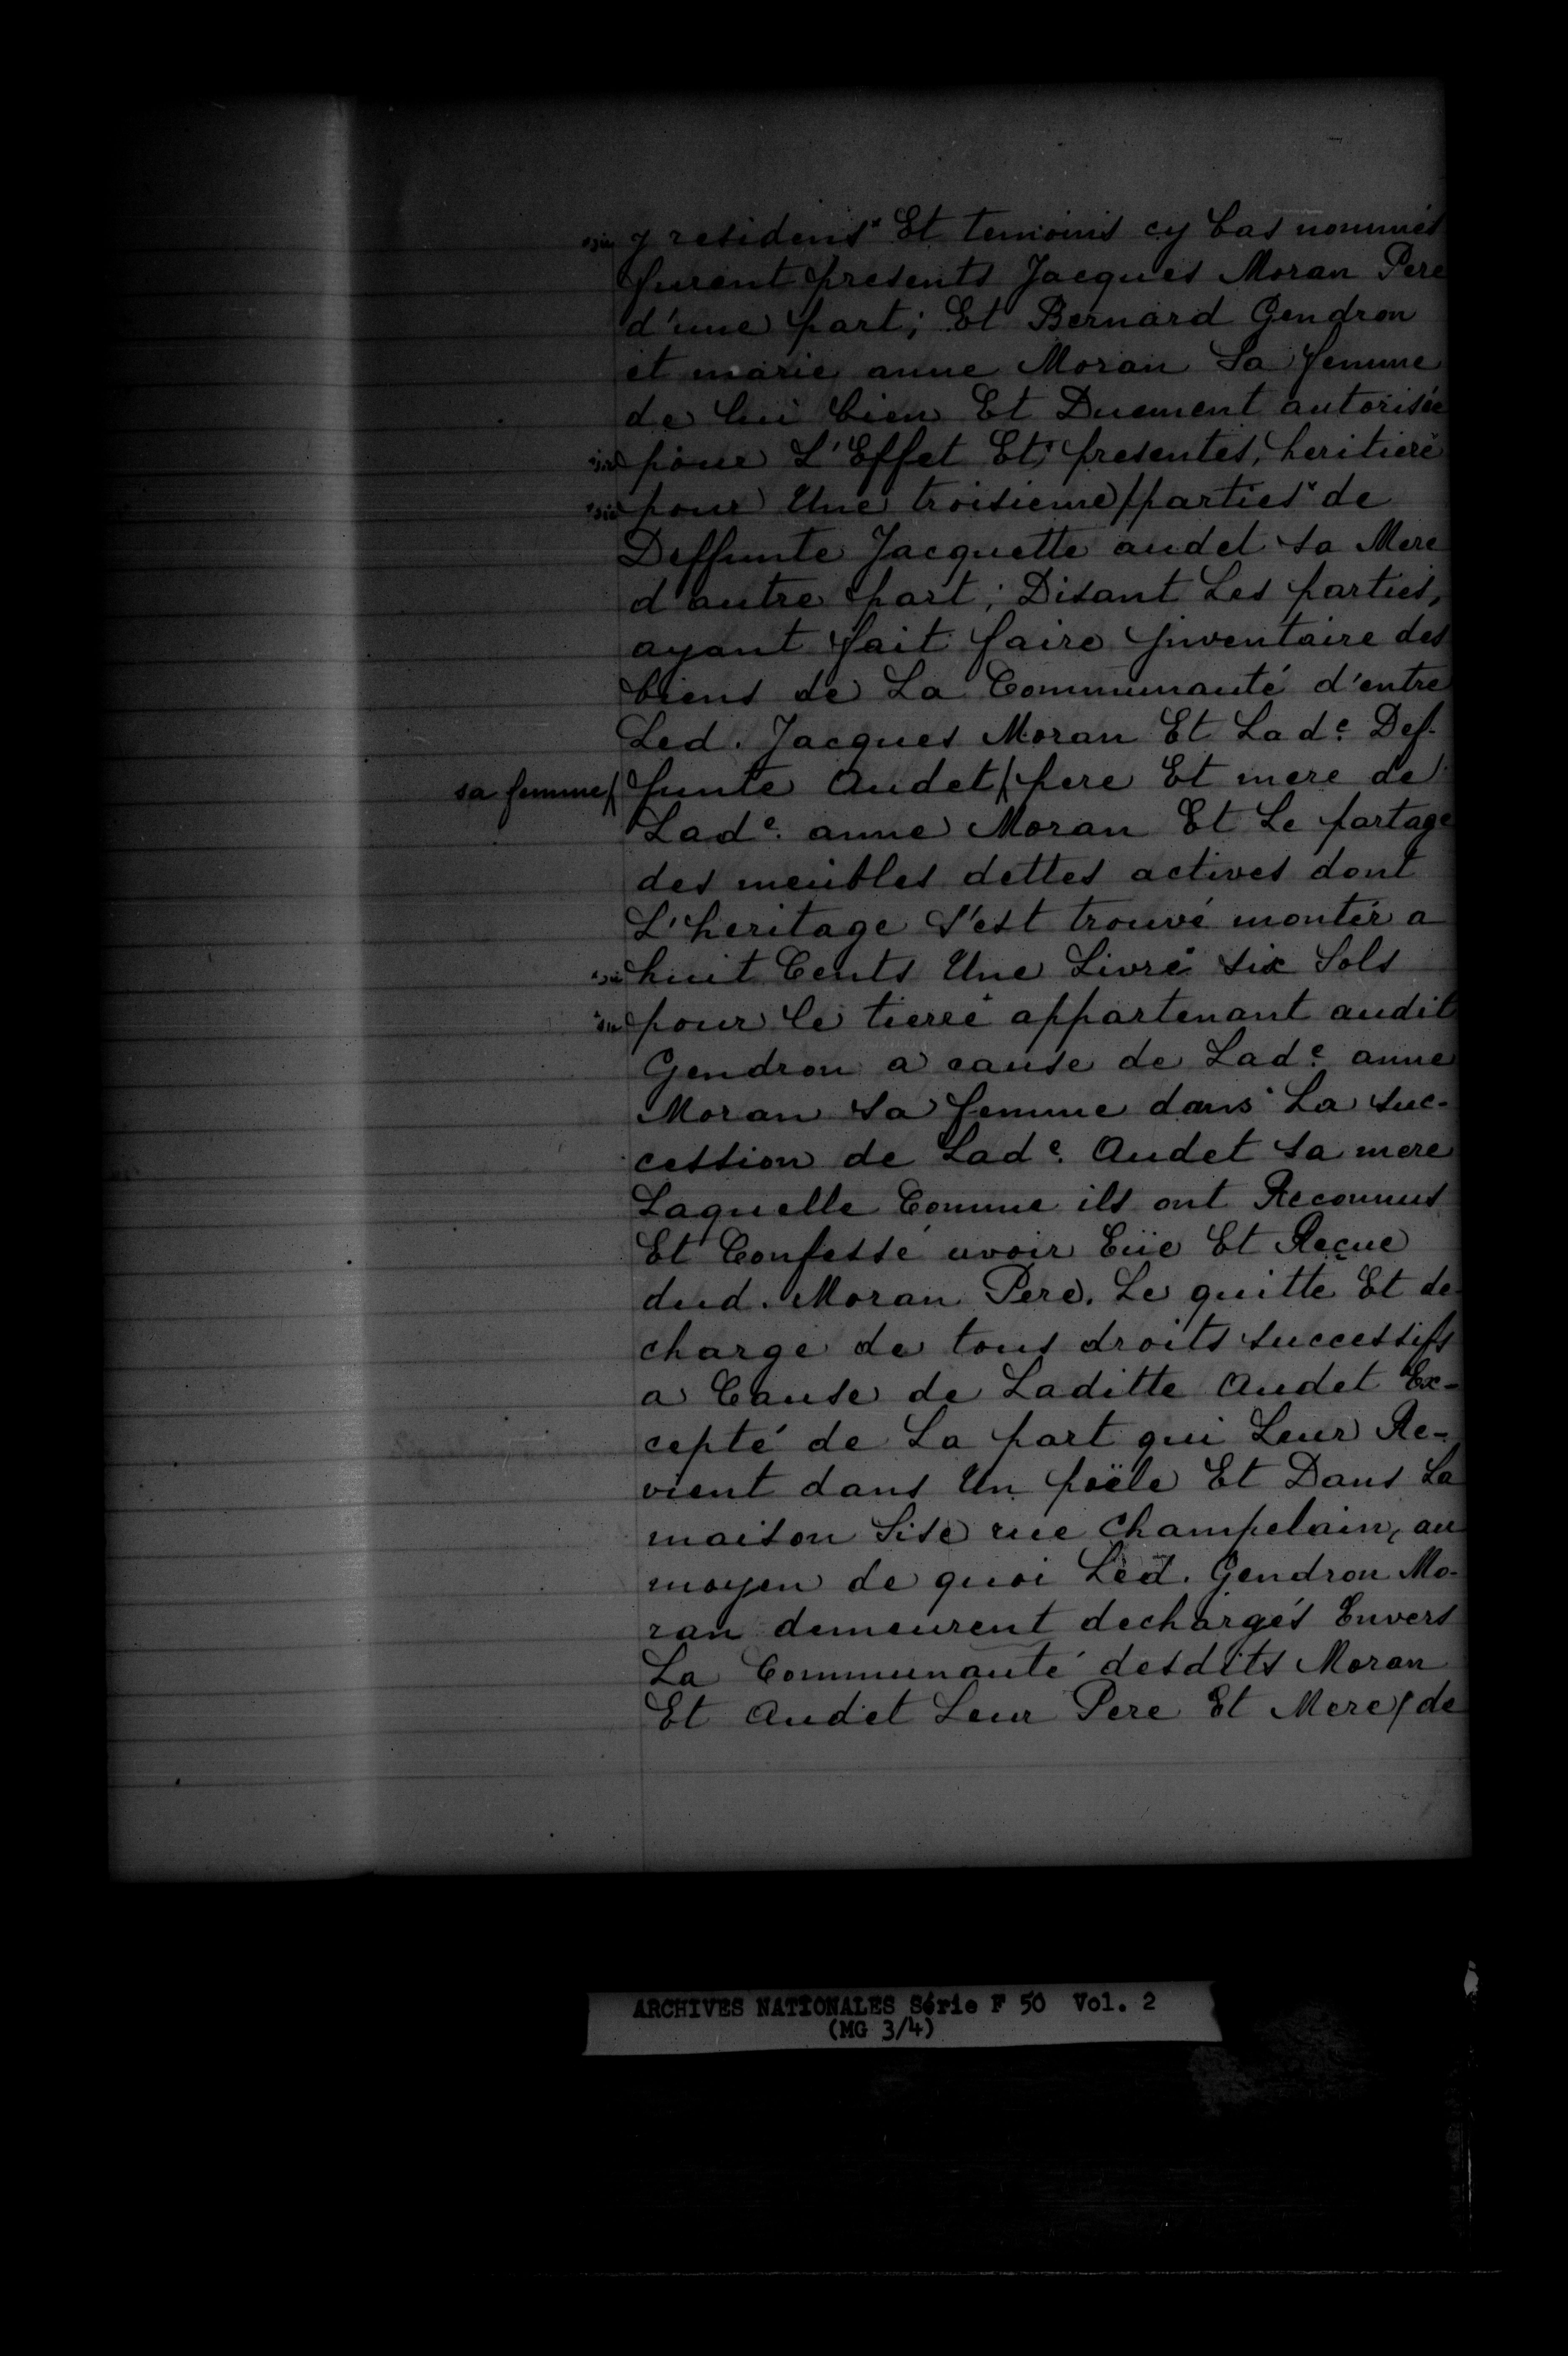 *sic y residens* Et temoins cy bas nommés
furent presents Jacques Moran Pere
d'une part; Et Bernard Gendron
et marie anne Moran Sa femme
de lui bien Et Duement autorisée
*sic pour L'Effet Et* presentes, heritiere
*sic pour Une troisieme/parties* de
Deffunte Jacquette audet sa Mere
d'autre part; Disant Les parties,
ayant fait faire Inventaire des
biens de La Communauté d'entre
Led. Jacques Moran Et Lad.e Def-
sa femme/ funte Audet/ pere Et mere de
Lad.e anne Moran Et Le partage
des meubles dettes actives dont
L'heritage S'est trouvé montér a
*sic huit Cents Une Livre* six Sols
*sic pour le tierre* appartenant audit
Gendron a cause de Lad.e anne
Moran Sa femme dans La suc-
cession de Lad.e Audet sa mere
Laquelle Comme ils ont Reconnus
Et Confessé avoir Eüe Et Reçue
dud. Moran Pere. Le quitte Et de-
charge de tous droits successifs
a Cause de Laditte Audet Ex-
cepté de La part qui Leur Re-
vient dans Un poële Et Dans La
maison Sise rue Champelain, au
moyen de quoi Led. Gendron Mo-
ran demeurent dechargés Envers
La Communauté desdits Moran
Et Audet Leur Pere Et Mere/ de
ARCHIVES NATIONALES Série F 50 Vol. 2
(MG 3/4)